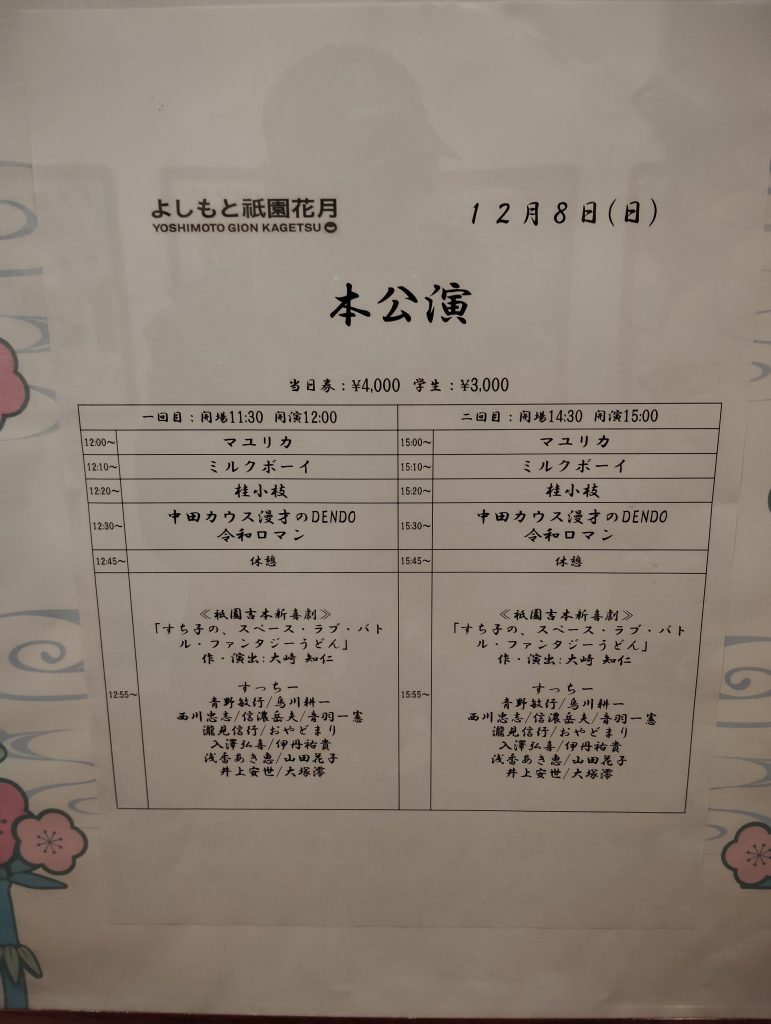 よしもと祇園花月
YOSHIMOTO GION KAGETSU
12月8日(日)
本公演
当日券:¥4,000 学生:¥3,000
一回目:開場11:30 開演12:00
12:00～ マユリカ
12:10～ ミルクボーイ
12:20～ 桂小枝
12:30～ 中田カウス漫才のDENDO
令和ロマン
12:45～ 休憩
12:55～
≪祇園吉本新喜劇≫
「すち子の、スペース・ラブ・バト
ル・ファンタジーうどん」
作・演出:大﨑 知仁
すっちー
青野敏行/烏川耕一
西川忠志/信濃岳夫/音羽一憲
瀧見信行/おやどまり
入澤弘喜/伊丹祐貴
浅香あき恵/山田花子
井上安世/大塚澪
二回目:開場14:30 開演15:00
15:00～ マユリカ
15:10～ ミルクボーイ
15:20～ 桂小枝
15:30～ 中田カウス漫才のDENDO
令和ロマン
15:45～ 休憩
15:55～
≪祇園吉本新喜劇≫
「すち子の、スペース・ラブ・バト
ル・ファンタジーうどん」
作・演出:大﨑 知仁
すっちー
青野敏行/烏川耕一
西川忠志/信濃岳夫/音羽一憲
瀧見信行/おやどまり
入澤弘喜/伊丹祐貴
浅香あき恵/山田花子
井上安世/大塚澪